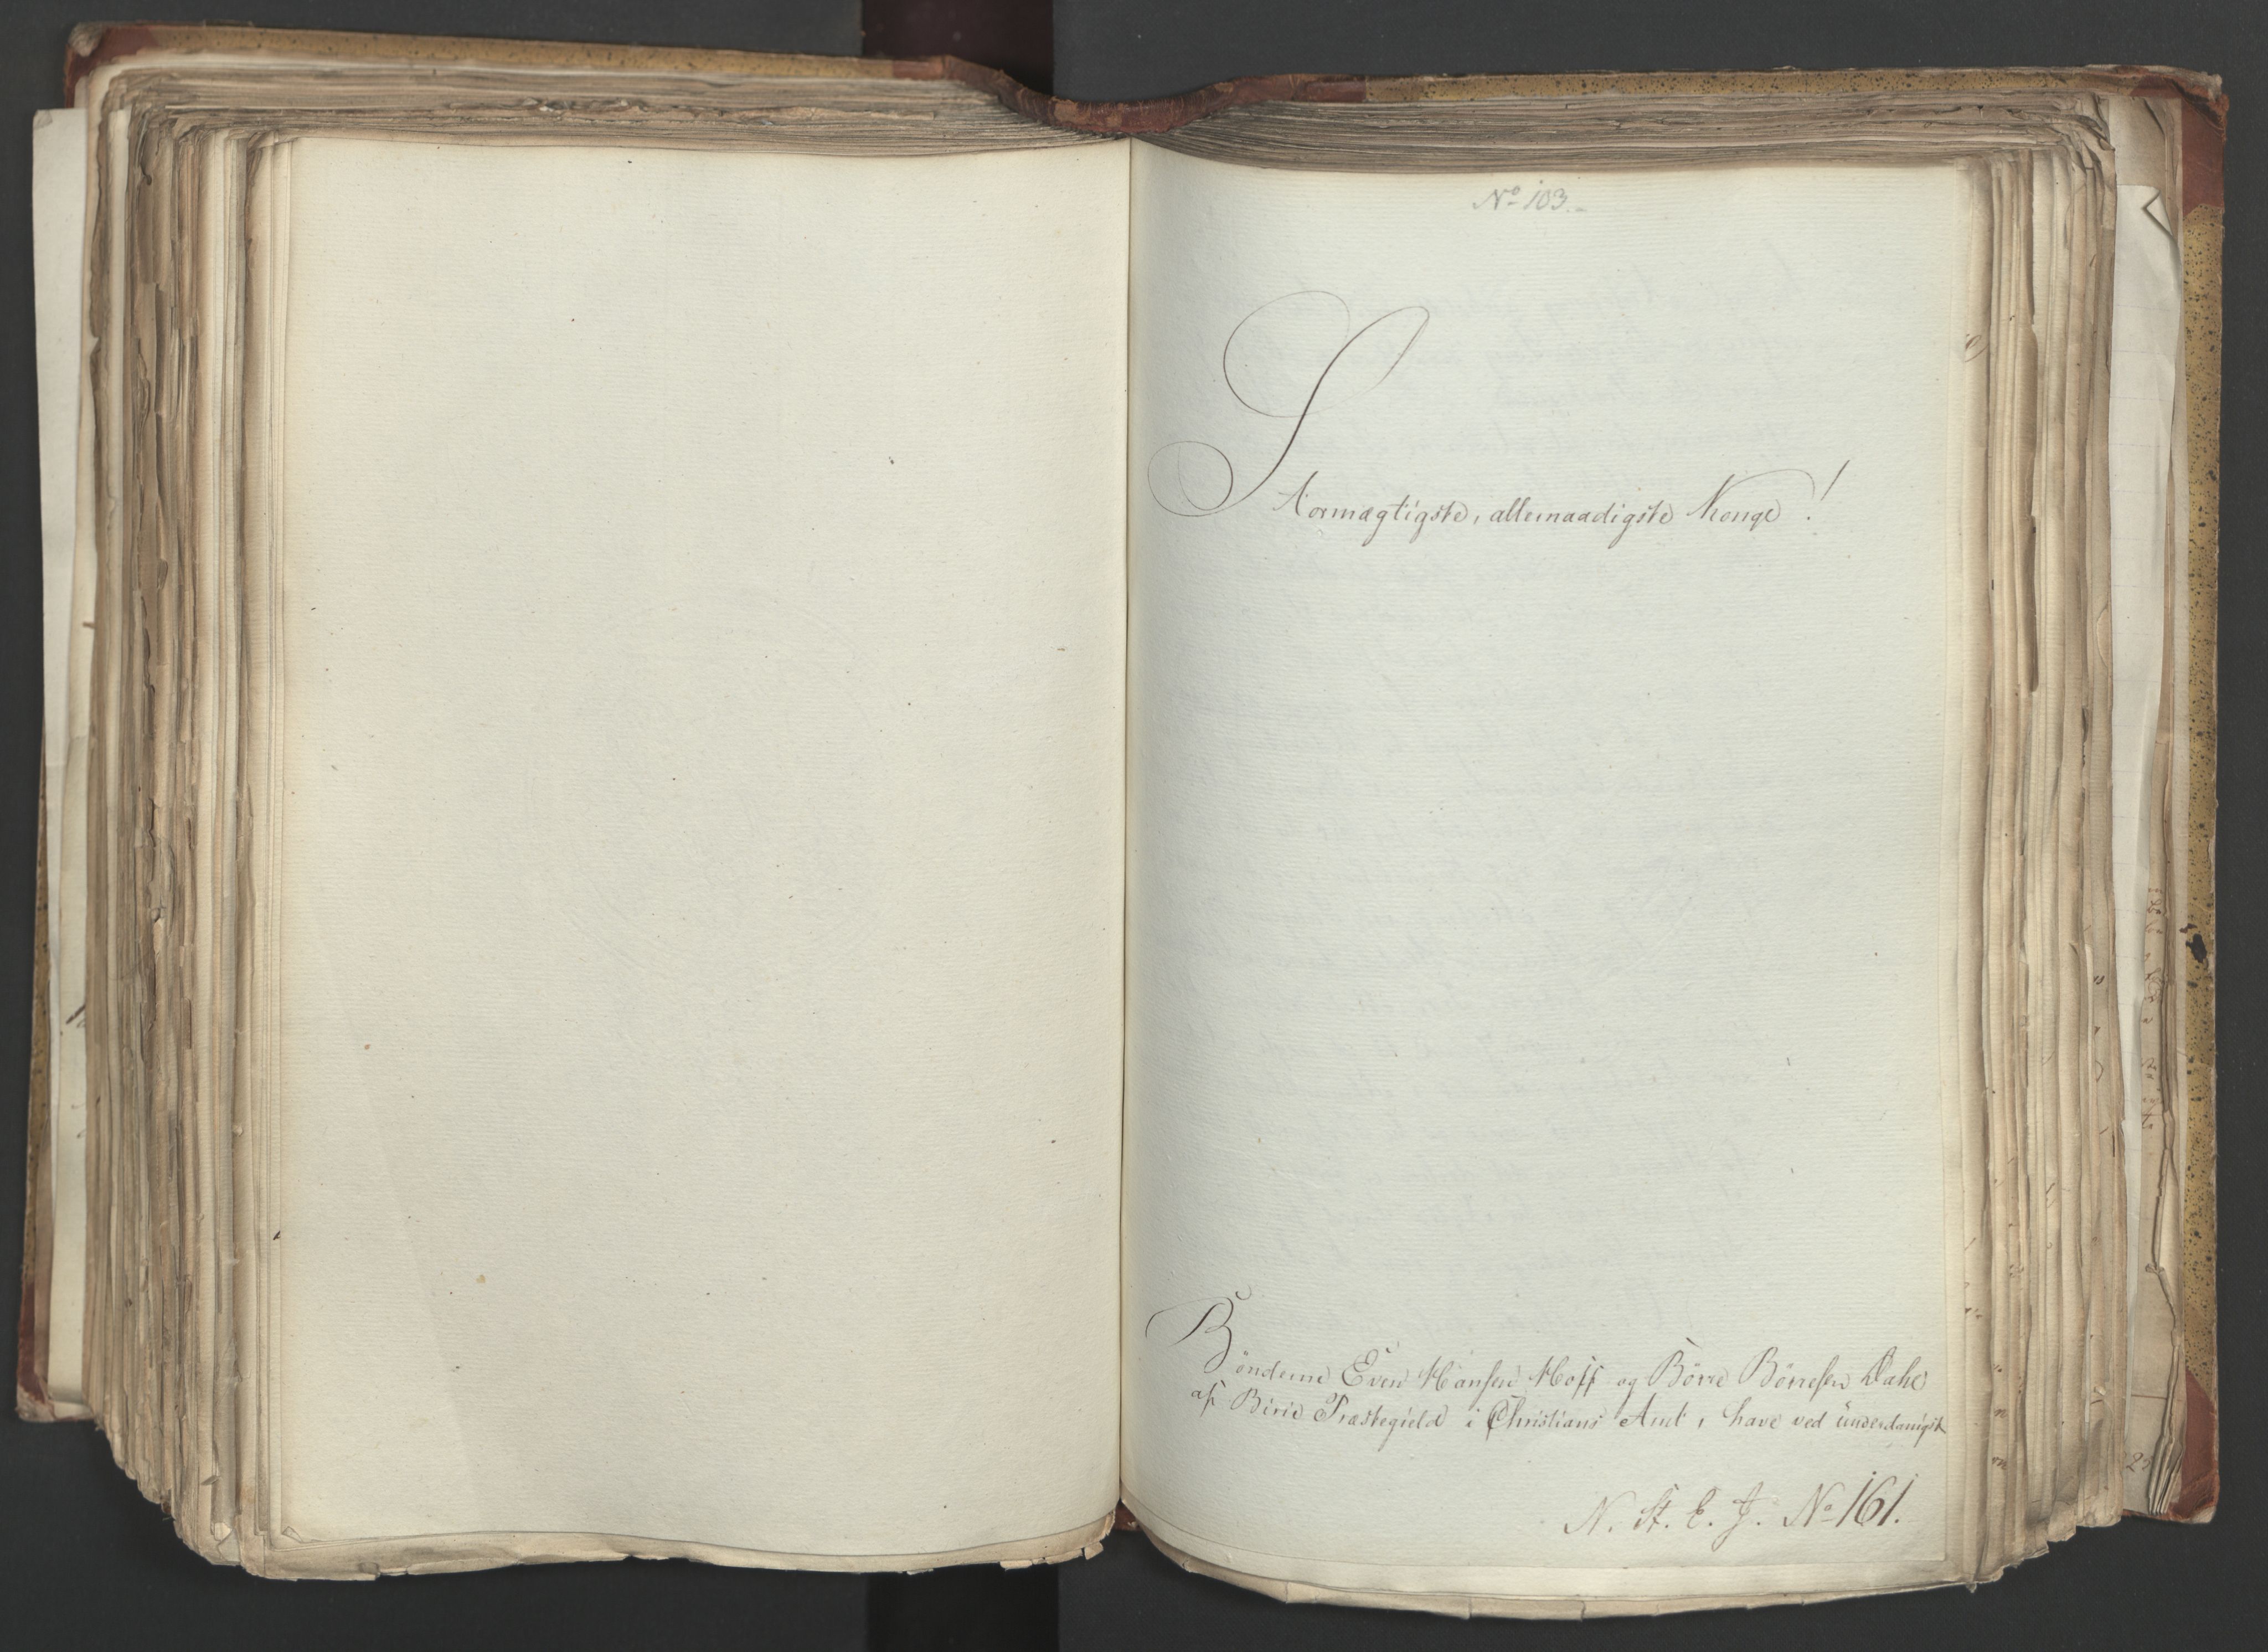 No 103.
Stormægtigste, allernaadigste Konge!
Bönderne Even Hansen Hoff og Börre Börresen Dahl
af Birid Præstegield i Christians Amt, have ved underdanigst
N. St. E. J. No 161.